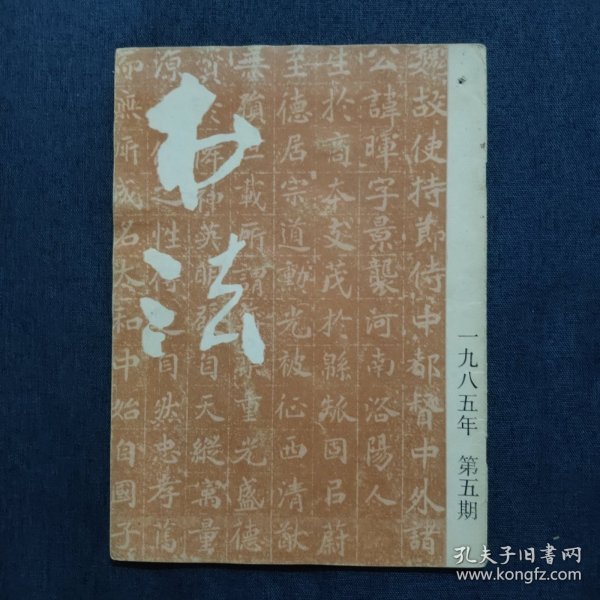 书法
一九八五年 第五期
魏故使持節侍中都督中外諸
公諱暉字景襲河南洛陽人
生於商
文茂於緜瓞固
蔚
至德居宗道勳光被征西清猷
無
載所謂
重光盛德
自天縱寓量
性
自然忠孝篤
而無所成名太和中始自國子
孔夫子旧书网
www.kongfz.com